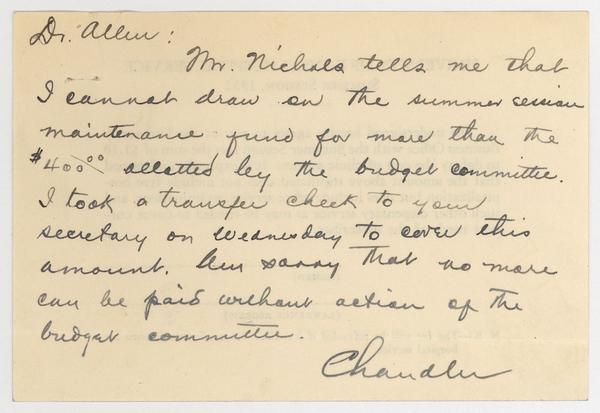 Dr. Allen:
Mr. Nichols tells me that
I cannot draw on the summer session
maintenance fund for more than the
$400.00 allotted by the budget committee.
I took a transfer check to your
secretary on Wednesday to cover this
amount. Am sorry that no more
can be paid without action of the
budget committee.
Chandler